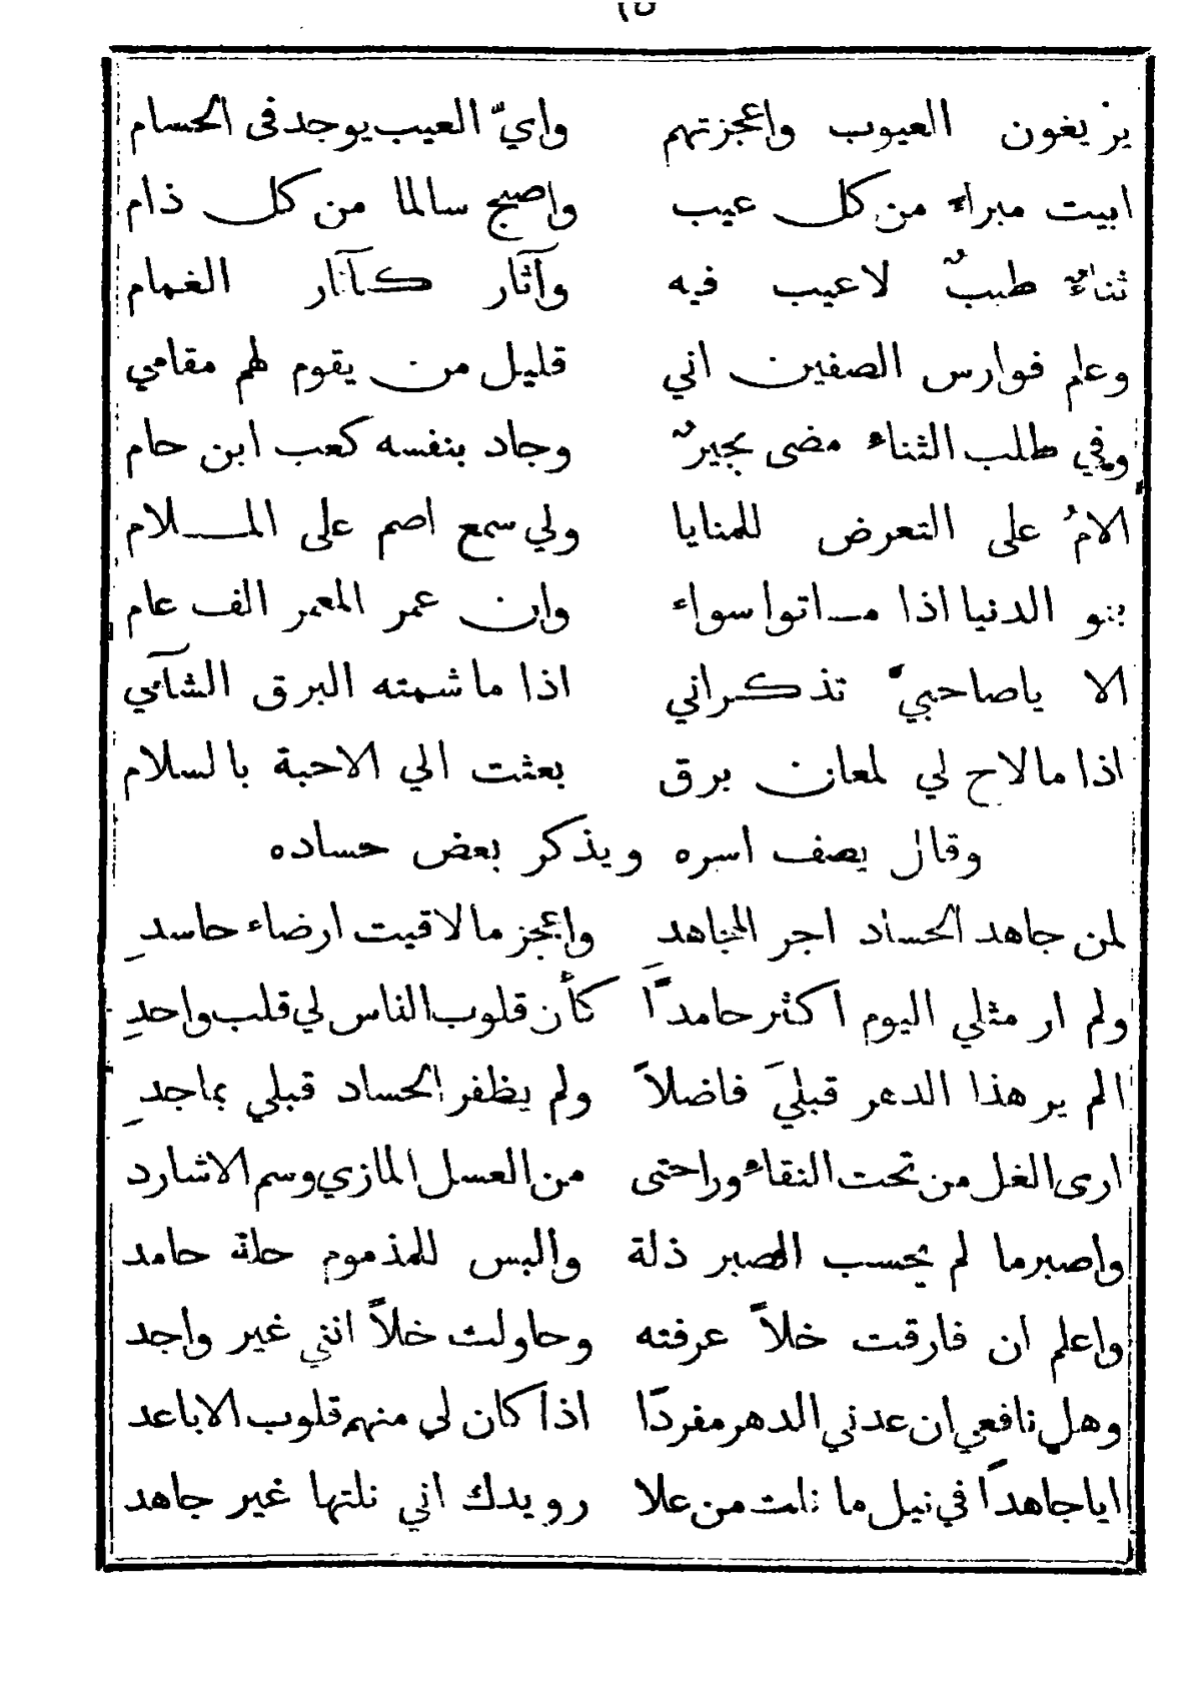 يزيغون العيوب واعجزتهم وايّ العيب يوجد في الحسام
ابيت مبراءً من كل عيب واصبح سالما من كل ذام
ثناءٌ طيبٌ لا عيب فيه وآثار كآثار الغمام
وعلم فوارس الصفين اني قليل من يقوم لهم مقامي
وفي طلب الثناء مضى بجيرٌ وجاد بنفسه كعب ابن حام
الامُ على التعرض للمنايا ولي سمع اصم على الملام
بنو الدنيا اذا ماتوا سواء وان عمر المعمر الف عام
الا ياصاحبيَّ تذكراني اذا ما شمته البرق الشآمي
اذا ما لاح لي لمعان برق بعثت الي الاحبة بالسلام
وقال يصف اسره ويذكر بعض حساده
لمن جاهد الحساد اجر المجاهد واعجز ما لاقيت ارضاء حاسدِ
ولم ار مثلي اليوم اكثر حامدًا كأن قلوب الناس لي قلب واحدِ
الم ير هذا الدهر قبليَ فاضلاً ولم يظفر الحساد قبلي بماجدِ
ارى الغل من تحت النقاء وراحتى من العسل الماذي وسم الاشارد
واصبر ما لم يحسب الصبر ذلة والبس للمذموم حلة حامد
واعلم ان فارقت خلاً عرفته وحاولت خلاً انني غير واجد
وهل نافعي ان عدني الدهر مفردًا اذا كان لي منهم قلوب الاباعد
ايا جاهدًا في نيل ما نلت من علا رويدك اني نلتها غير جاهد